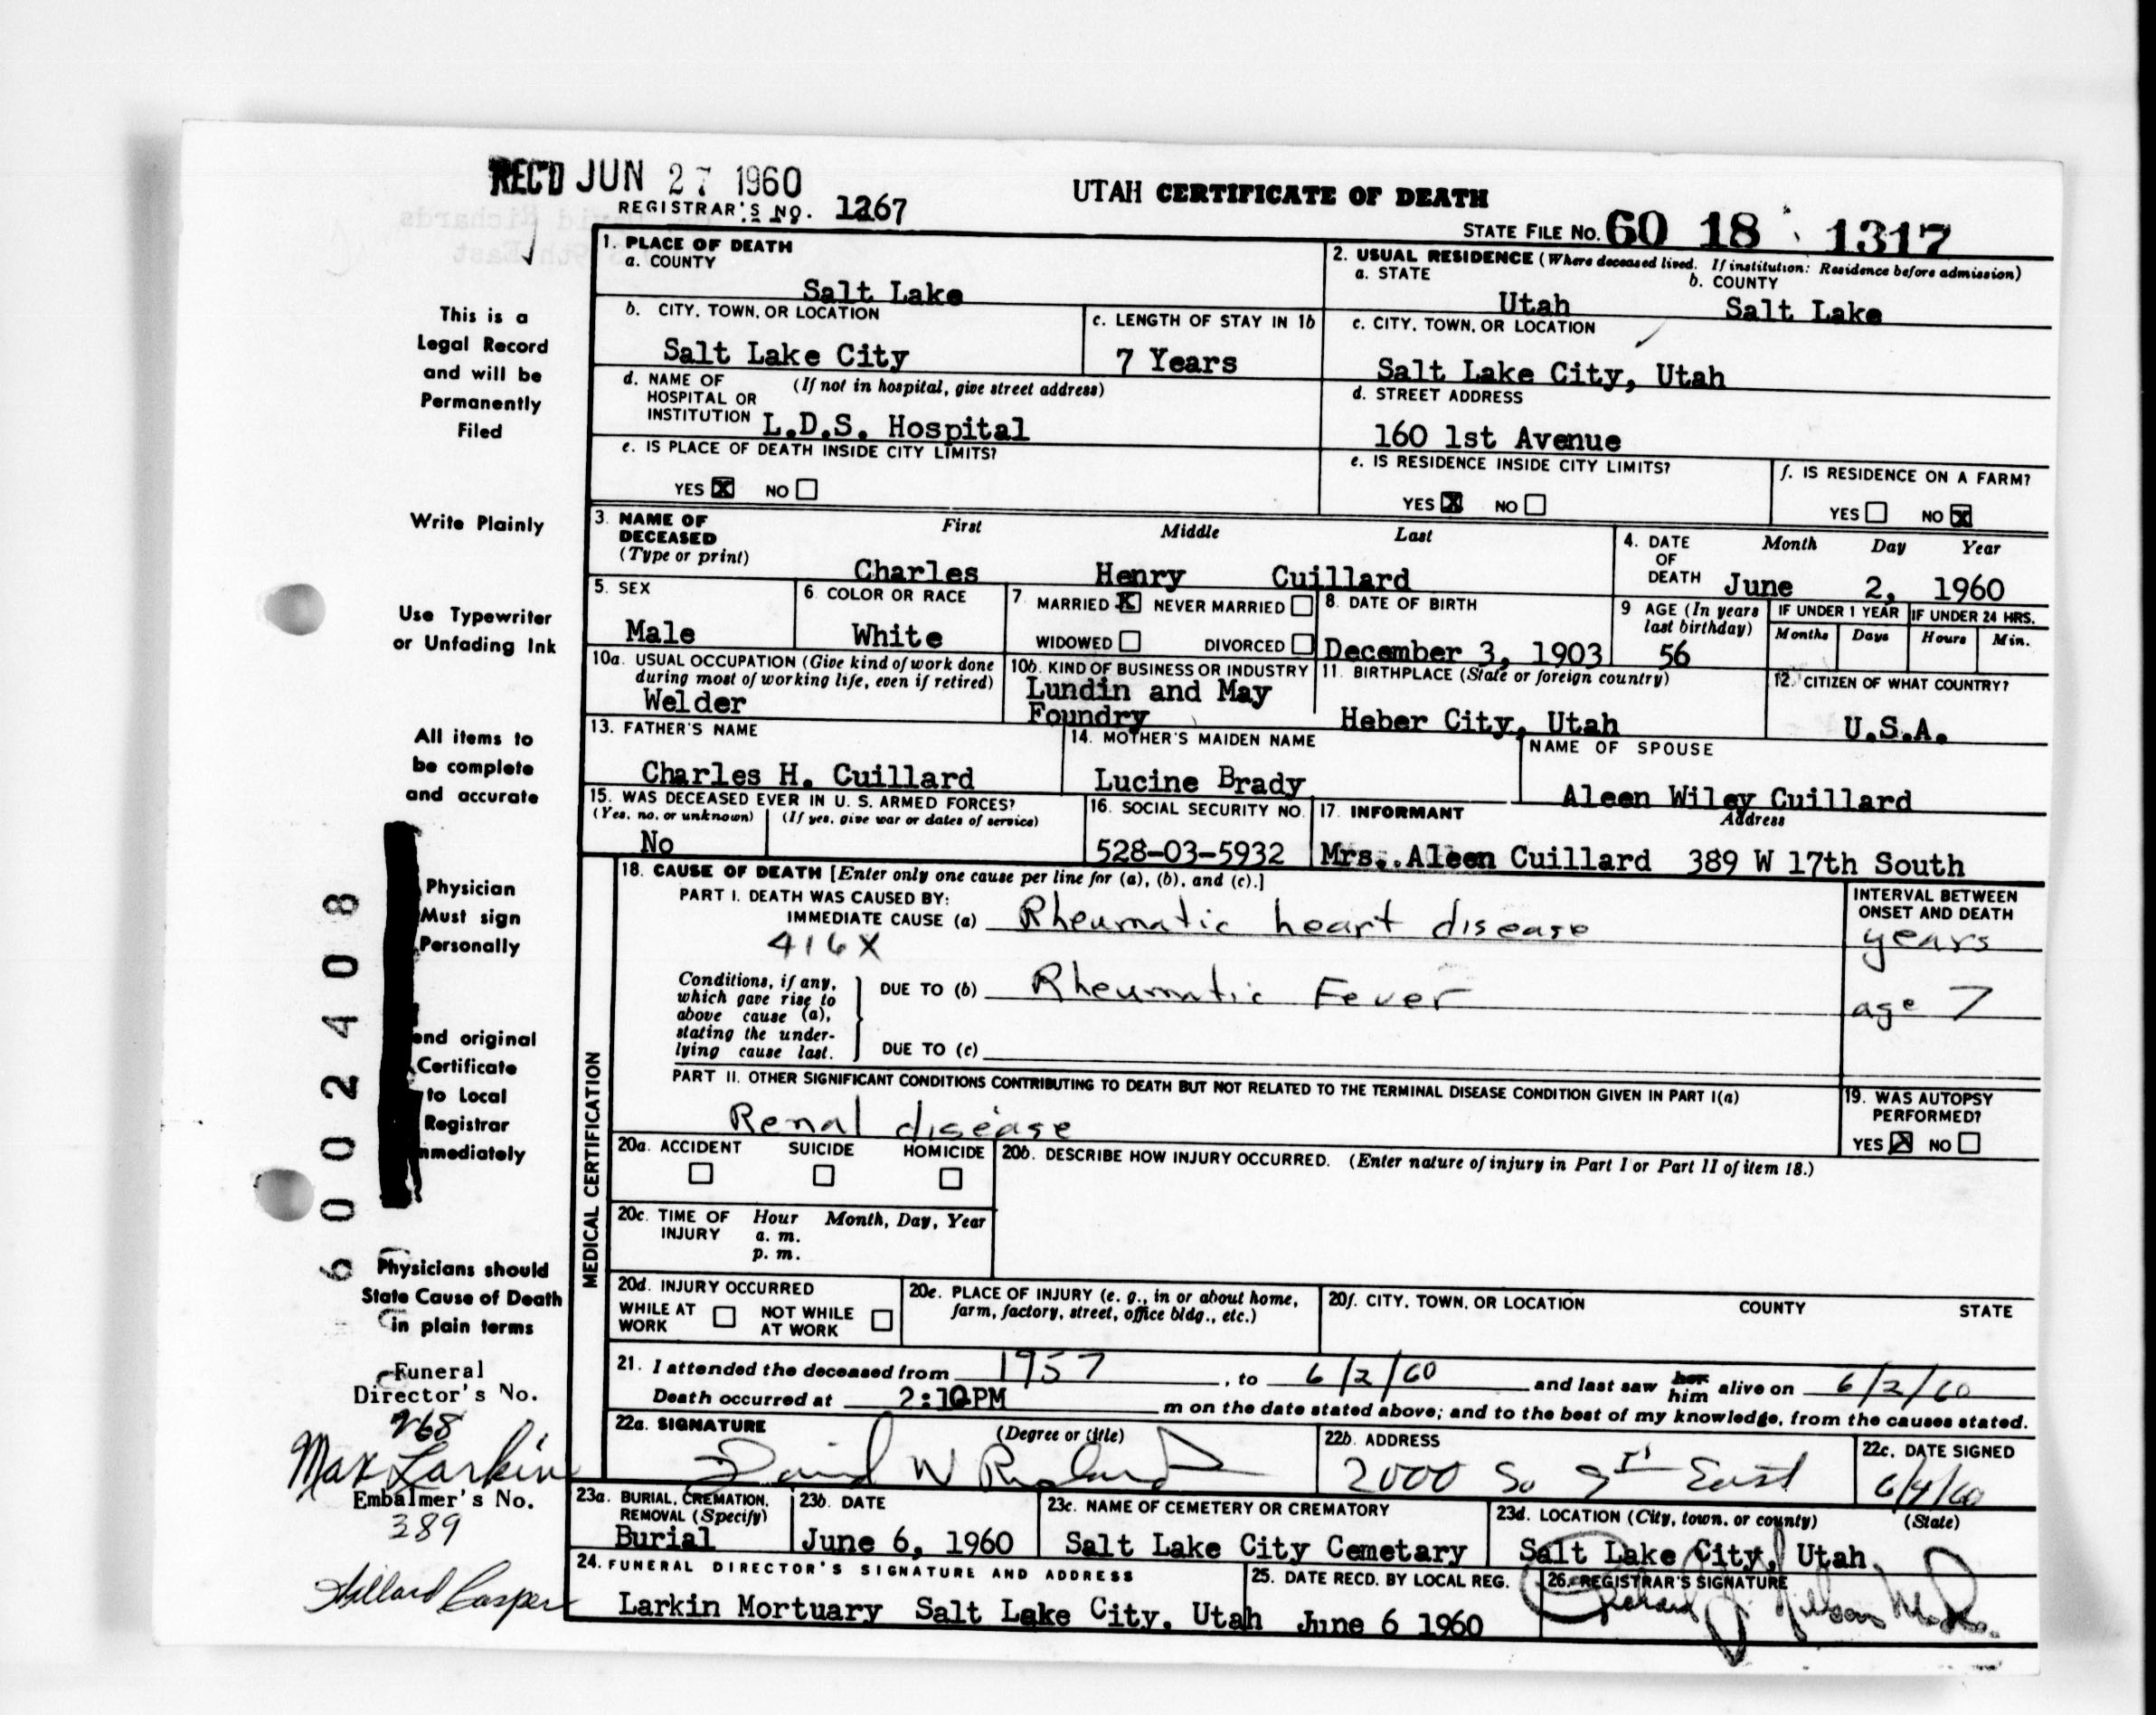 REC'D JUN 27 1960
REGISTRAR'S NO. 1267
UTAH CERTIFICATE OF DEATH
STATE FILE NO. 60 18 1317
This is a
Legal Record
and will be
Permanently
Filed
Write Plainly
Use Typewriter
or Unfading Ink
All items to
be complete
and accurate
Physician
Must sign
Personally
end original
Certificate
to Local
Registrar
mmediately
Physicians should
State Cause of Death
in plain terms
6002408
Funeral
Director's No.
268
Max Larkin
Embalmer's No.
389
Casper
1. PLACE OF DEATH
a. COUNTY
Salt Lake
2. USUAL RESIDENCE (Where deceased lived. If institution: Residence before admission)
a. STATE b. COUNTY
Utah Salt Lake
b. CITY, TOWN, OR LOCATION
Salt Lake City
c. LENGTH OF STAY IN 1b
7 Years
c. CITY, TOWN, OR LOCATION
Salt Lake City, Utah
d. NAME OF (If not in hospital, give street address)
HOSPITAL OR
INSTITUTION L.D.S. Hospital
d. STREET ADDRESS
160 1st Avenue
e. IS PLACE OF DEATH INSIDE CITY LIMITS?
YES X NO
e. IS RESIDENCE INSIDE CITY LIMITS?
YES X NO
f. IS RESIDENCE ON A FARM?
YES NO X
3. NAME OF First Middle Last
DECEASED
(Type or print)
Charles Henry Cuillard
4. DATE Month Day Year
OF
DEATH June 2, 1960
5. SEX
Male
6 COLOR OR RACE
White
7. MARRIED X NEVER MARRIED
WIDOWED DIVORCED
8. DATE OF BIRTH
December 3, 1903
9 AGE (In years
last birthday)
56
IF UNDER 1 YEAR IF UNDER 24 HRS.
Months Days Hours Min.
10a. USUAL OCCUPATION (Give kind of work done
during most of working life, even if retired)
Welder
10b. KIND OF BUSINESS OR INDUSTRY
Lundin and May
Foundry
11. BIRTHPLACE (State or foreign country)
Heber City, Utah
12. CITIZEN OF WHAT COUNTRY?
U.S.A.
13. FATHER'S NAME
Charles H. Cuillard
14. MOTHER'S MAIDEN NAME
Lucine Brady
NAME OF SPOUSE
Aleen Wiley Cuillard
15. WAS DECEASED EVER IN U. S. ARMED FORCES?
(Yes, no, or unknown) (If yes, give war or dates of service)
No
16. SOCIAL SECURITY NO.
528-03-5932
17. INFORMANT Address
Mrs. Aleen Cuillard 389 W 17th South
MEDICAL CERTIFICATION
18. CAUSE OF DEATH [Enter only one cause per line for (a), (b), and (c).]
PART I. DEATH WAS CAUSED BY:
IMMEDIATE CAUSE (a) Rheumatic heart disease
416X
INTERVAL BETWEEN
ONSET AND DEATH
years
Conditions, if any,
which gave rise to
above cause (a),
stating the under-
lying cause last.
DUE TO (b) Rheumatic Fever
age 7
DUE TO (c)
PART II. OTHER SIGNIFICANT CONDITIONS CONTRIBUTING TO DEATH BUT NOT RELATED TO THE TERMINAL DISEASE CONDITION GIVEN IN PART I(a)
Renal disease
19. WAS AUTOPSY
PERFORMED?
YES X NO
20a. ACCIDENT SUICIDE HOMICIDE
20b. DESCRIBE HOW INJURY OCCURRED. (Enter nature of injury in Part I or Part II of item 18.)
20c. TIME OF Hour Month, Day, Year
INJURY a. m.
p. m.
20d. INJURY OCCURRED
WHILE AT NOT WHILE
WORK AT WORK
20e. PLACE OF INJURY (e. g., in or about home,
farm, factory, street, office bldg., etc.)
20f. CITY, TOWN, OR LOCATION COUNTY STATE
21. I attended the deceased from 1957, to 6/2/60 and last saw her him alive on 6/2/60
Death occurred at 2:10PM m on the date stated above; and to the best of my knowledge, from the causes stated.
22a. SIGNATURE (Degree or title)
David W Richards
22b. ADDRESS
2000 So 9th East
22c. DATE SIGNED
6/4/60
23a. BURIAL, CREMATION,
REMOVAL (Specify)
Burial
23b. DATE
June 6, 1960
23c. NAME OF CEMETERY OR CREMATORY
Salt Lake City Cemetary
23d. LOCATION (City, town, or county) (State)
Salt Lake City, Utah.
24. FUNERAL DIRECTOR'S SIGNATURE AND ADDRESS
Larkin Mortuary Salt Lake City, Utah
25. DATE RECD. BY LOCAL REG.
June 6 1960
26. REGISTRAR'S SIGNATURE